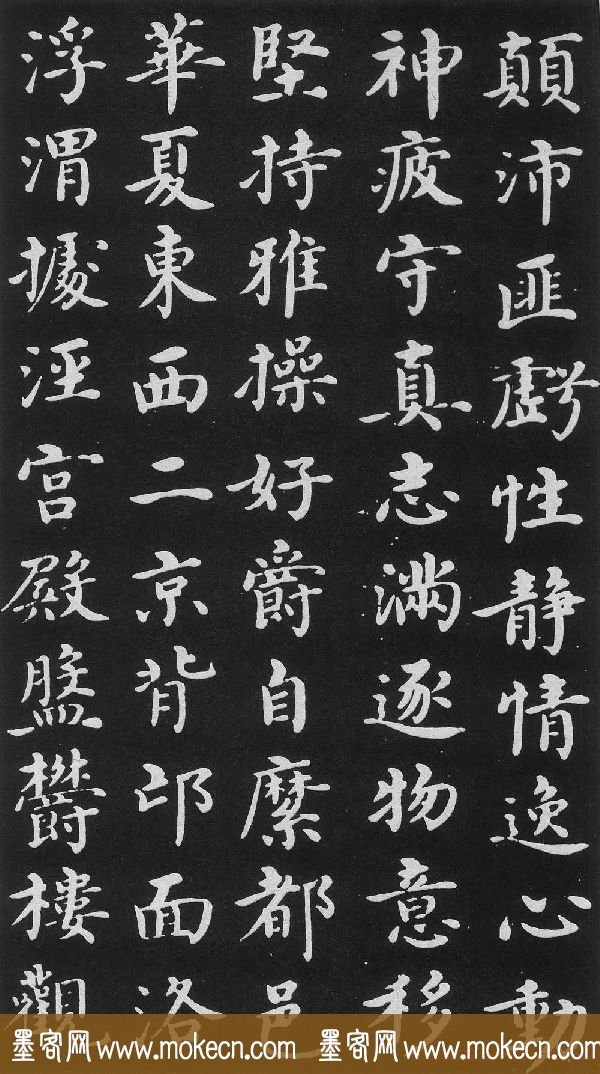 顛沛匪虧性靜情逸心動
神疲守真志滿逐物意移
堅持雅操好爵自縻都邑
華夏東西二京背邙面洛
浮渭據涇宮殿盤鬱樓觀
墨客网 www.mokecn.com 墨客网 www.mokecn.com